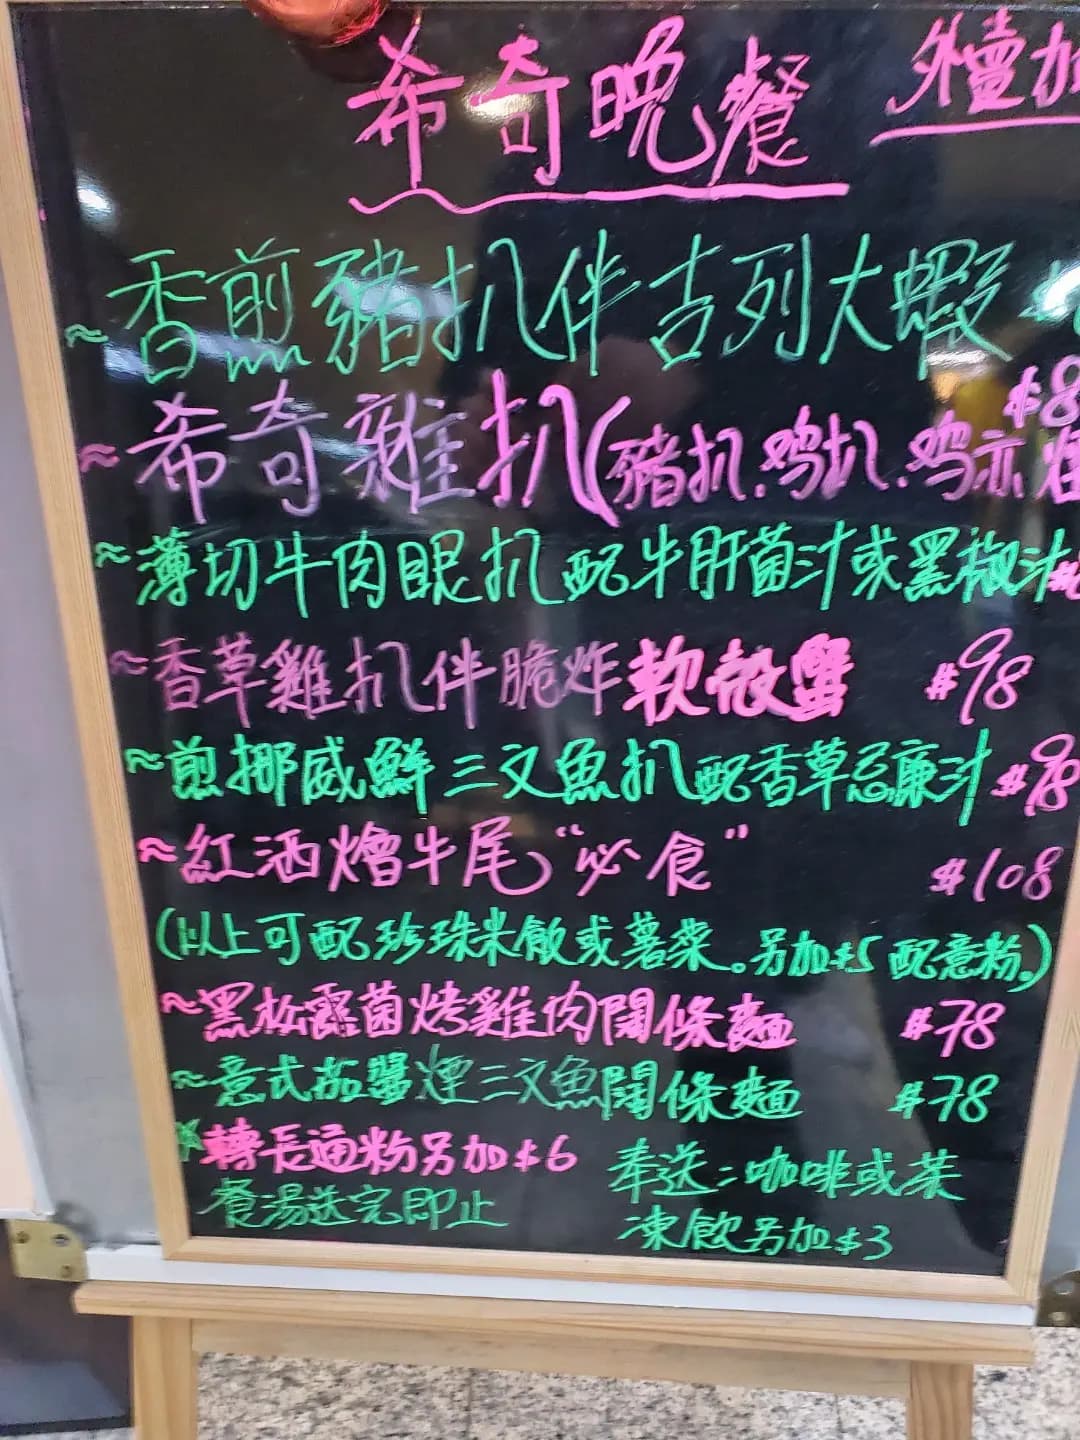 希奇晚餐 外賣加
~香煎豬扒伴吉列大蝦
~希奇雜扒(豬扒.鸡扒.鸡亦 $8
~薄切牛肉眼扒配牛肝菌汁或黑椒汁
~香草雞扒伴脆炸軟殼蟹 $98
~煎挪威鮮三文魚扒配香草忌廉汁 $98
~紅酒燴牛尾"必食" $108
(以上可配珍珠米飯或薯菜。另加$5配意粉。)
~黑松露菌烤雞肉闊條麵 $78
~意式茄醬煙三文魚闊條麵 $78
*轉長通粉另加$6
餐湯送完即止
奉送:咖啡或茶
凍飲另加$3